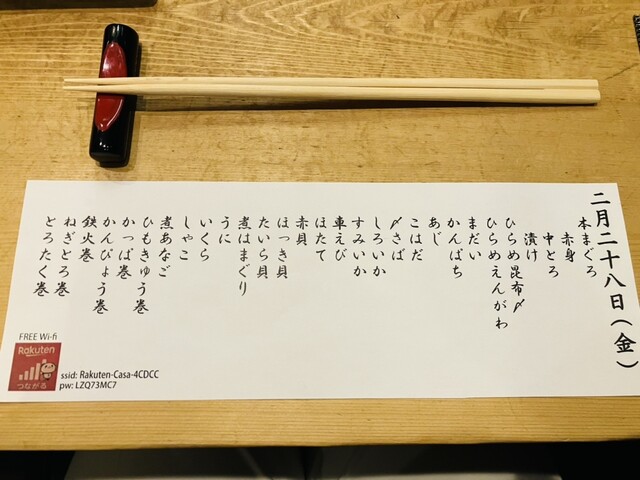 二月二十八日(金)
本まぐろ
赤身
中とろ
漬け
ひらめ昆布〆
ひらめえんがわ
まだい
かんぱち
あじ
こはだ
〆さば
しろいか
すみいか
車えび
ほたて
赤貝
ほっき貝
たいら貝
煮はまぐり
うに
いくら
しゃこ
煮あなご
ひもきゅう巻
かっぱ巻
かんぴょう巻
鉄火巻
ねぎとろ巻
とろたく巻
FREE Wi-fi
Rakuten
つながる
ssid: Rakuten-Casa-4CDCC
pw: LZQ73MC7